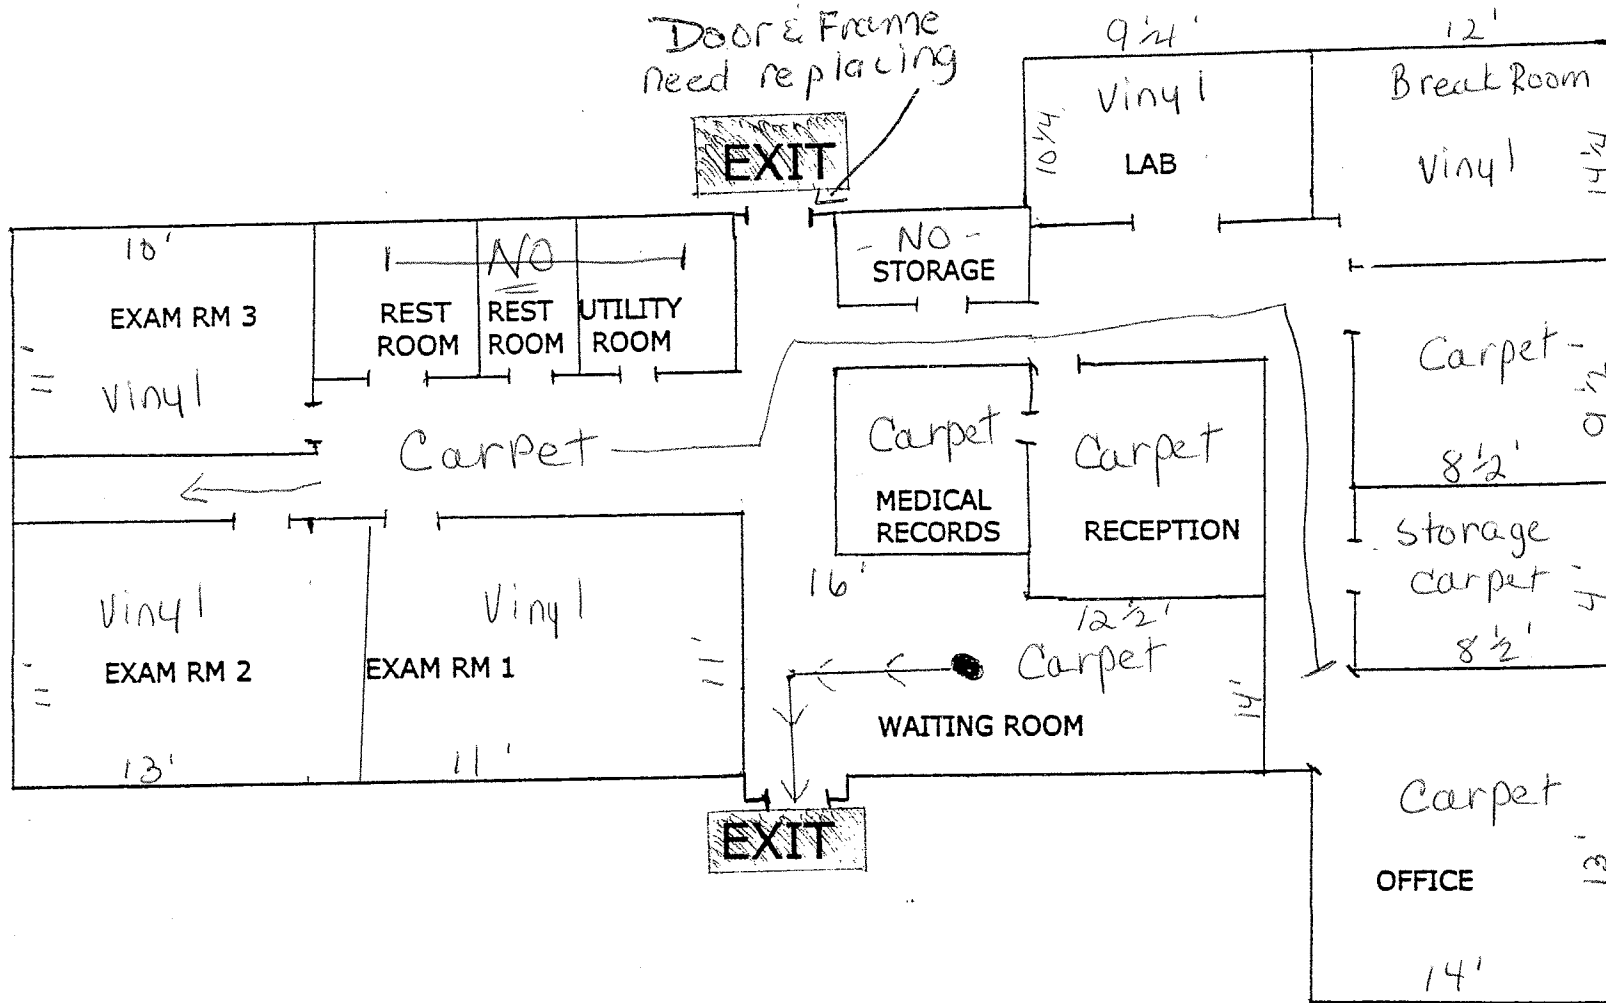 Door & Frame
need replacing
EXIT
9 1/4'
12'
Vinyl
10 1/4
LAB
Break Room
Vinyl
14 1/4
10'
EXAM RM 3
11'
Vinyl
NO
REST
ROOM
REST
ROOM
UTILITY
ROOM
- NO -
STORAGE
Carpet
Carpet
MEDICAL
RECORDS
Carpet
RECEPTION
Carpet
9 1/2
8 1/2'
Storage
Carpet
4'
8 1/2'
Vinyl
EXAM RM 2
11'
13'
Vinyl
EXAM RM 1
11'
11'
16'
12 1/2'
Carpet
14'
WAITING ROOM
EXIT
Carpet
13'
OFFICE
14'